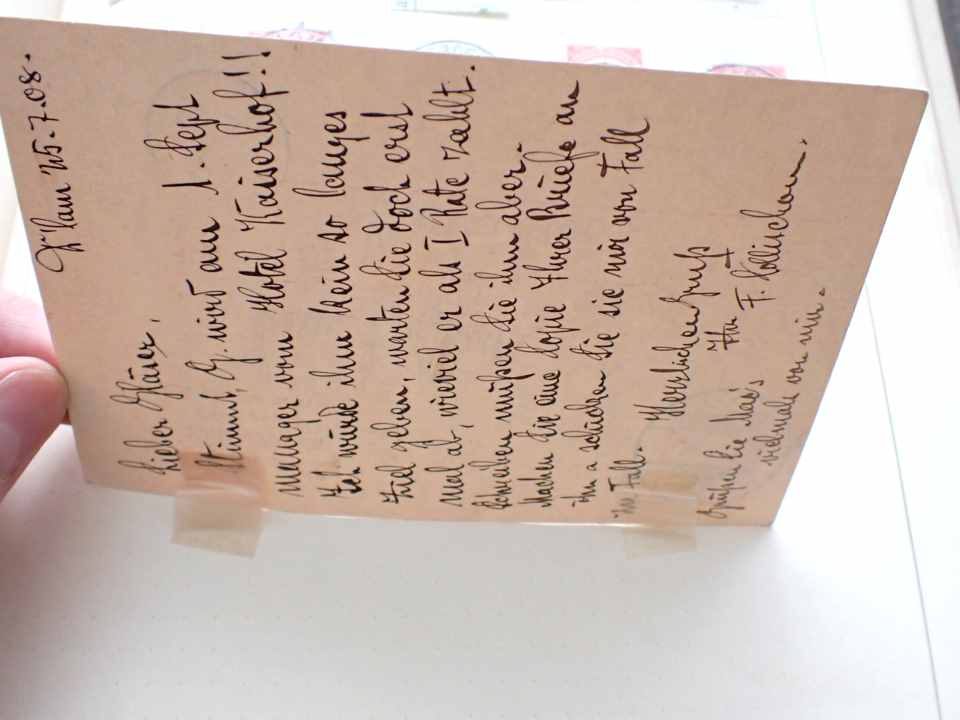 Ham 25.7.08.
Lieber Gläser,
Stimmt, G. wird am 1. Sept
manager vom Hotel Kaiserhof!!
Ich würde ihm kein so langes
Ziel geben, warten Sie doch erst
mal ab, wieviel er als I Rate zahlt.
Schreiben müßen Sie ihm aber.
Machen Sie eine Kopie Ihrer Briefe an
ihn & schicken Sie sie mir von Fall
zu Fall. Herzlichen Gruß
Ihr
F.
Grüßen Sie
vielmals von mir.